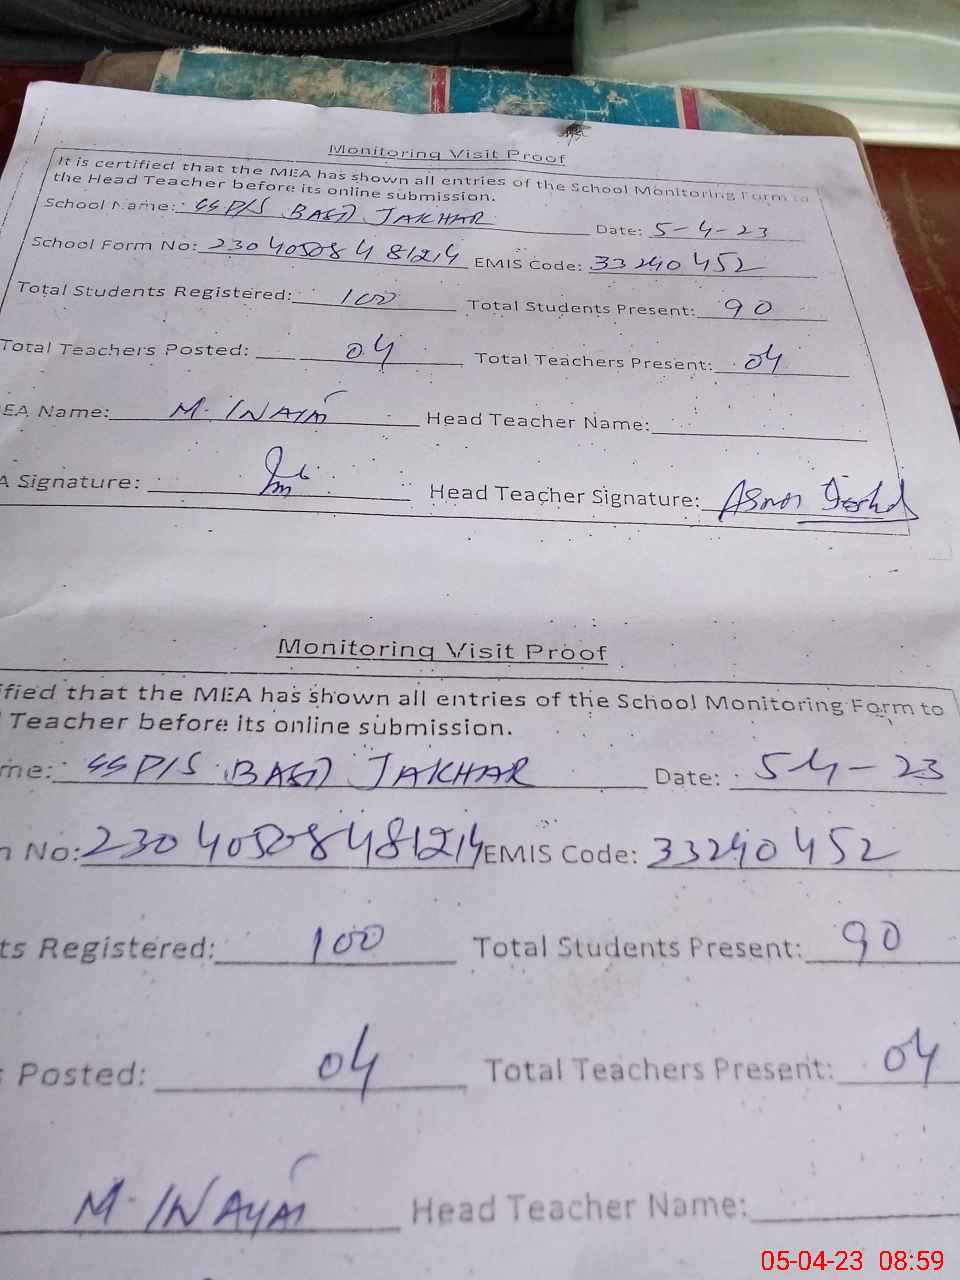 Monitoring Visit Proof
It is certified that the MEA has shown all entries of the School Monitoring Form to
the Head Teacher before its online submission.
School Name: SSP/S BASTI JAKHAR Date: 5-4-23
School Form No: 230405084 81214 EMIS Code: 33240452
Total Students Registered: 100 Total Students Present: 90
Total Teachers Posted: 04 Total Teachers Present: 04
EA Name: M. INAYAT Head Teacher Name:
A Signature: Head Teacher Signature:
Monitoring Visit Proof
ified that the MEA has shown all entries of the School Monitoring Form to
Teacher before its online submission.
me: SSP/S BASTI JAKHAR Date: 5-4-23
n No: 23040508481214 EMIS Code: 33240452
ts Registered: 100 Total Students Present: 90
s Posted: 04 Total Teachers Present: 04
M. INAYAT Head Teacher Name:
05-04-23 08:59